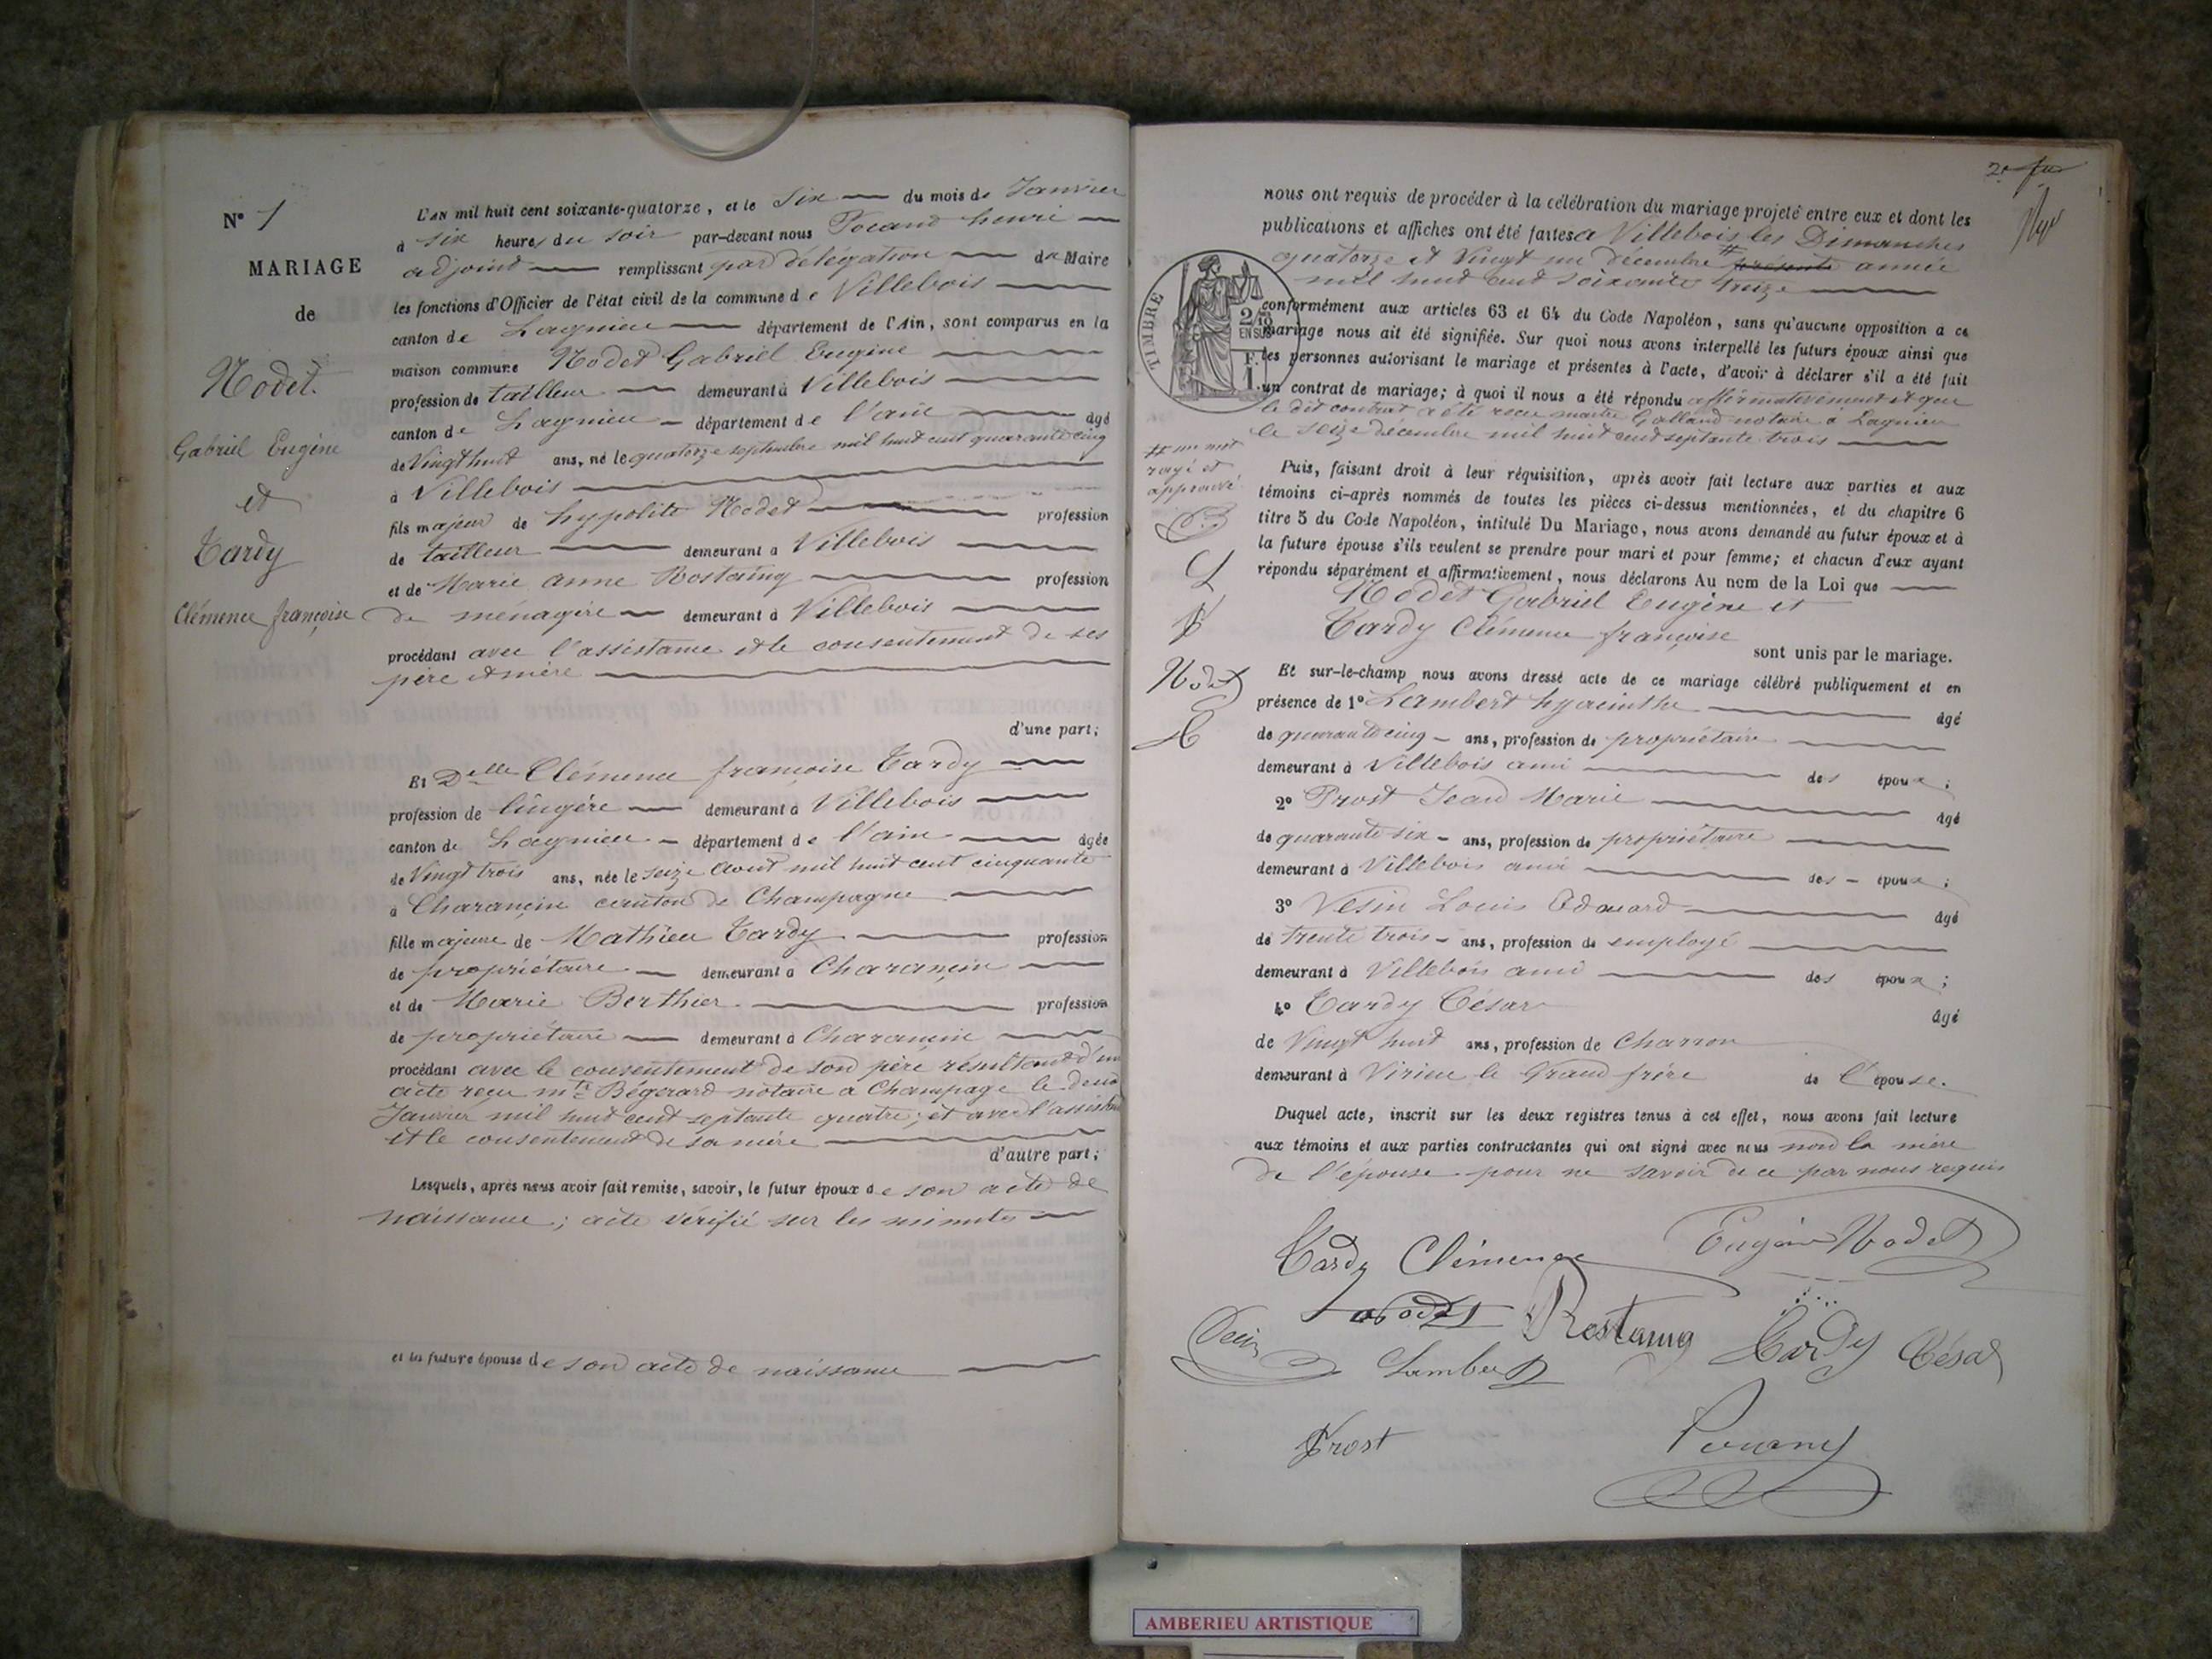 N° 1
MARIAGE
de
Nodet
Gabriel Eugène
et
Tardy
Clémence françoise
L'AN mil huit cent soixante-quatorze, et le Six du mois de Janvier
à six heures du soir par-devant nous Pocand henri
adjoint remplissant par délégation du Maire
les fonctions d'Officier de l'état civil de la commune de Villebois
canton de Lagnieu département de l'Ain, sont comparus en la
maison commune Nodet Gabriel Eugène
profession de tailleur demeurant à Villebois
canton de Lagnieu département de l'ain âgé
de Vingt huit ans, né le quatorze septembre mil huit cent quarante cinq
à Villebois
fils majeur de hypolite Nodet profession
de tailleur demeurant à Villebois
et de Marie anne Rostaing profession
de ménagère demeurant à Villebois
procédant avec l'assistance et le consentement de ses
père et mère
d'une part;
Et Delle Clémence françoise Tardy
profession de lingère demeurant à Villebois
canton de Lagnieu département de l'ain âgée
de Vingt trois ans, née le seize Aout mil huit cent cinquante
à Charancin canton de Champagne
fille majeure de Mathieu Tardy profession
de propriétaire demeurant à Charancin
et de Marie Berthier profession
de propriétaire demeurant à Charancin
procédant avec le consentement de son père résultant d'un
acte reçu mtre Bégerard notaire a Champage le deux
Janvier mil huit cent septante quatre; et avec l'assistance
et le consentement de sa mère
d'autre part;
Lesquels, après nous avoir fait remise, savoir, le futur époux de son acte de
naissance; acte vérifié sur les minutes
et la future épouse de son acte de naissance
2e
nous ont requis de procéder à la célébration du mariage projeté entre eux et dont les
publications et affiches ont été faites à Villebois les Dimanches
quatorze et Vingt un décembre # présente année
mil huit cent soixante treize
TIMBRE
2/10
EN SUS
1 F.
conformément aux articles 63 et 64 du Code Napoléon, sans qu'aucune opposition a ce
mariage nous ait été signifiée. Sur quoi nous avons interpellé les futurs époux ainsi que
les personnes autorisant le mariage et présentes à l'acte, d'avoir à déclarer s'il a été fait
un contrat de mariage; à quoi il nous a été répondu affirmativement et que
le dit contrat a été reçu maitre Galland notaire à Lagnieu
le seize décembre mil huit cent septante trois
# un mot
rayé et
approuvé
L
P
Nodet
C
Puis, faisant droit à leur réquisition, après avoir fait lecture aux parties et aux
témoins ci-après nommés de toutes les pièces ci-dessus mentionnées, et du chapitre 6
titre 5 du Code Napoléon, intitulé Du Mariage, nous avons demandé au futur époux et à
la future épouse s'ils veulent se prendre pour mari et pour femme; et chacun d'eux ayant
répondu séparément et affirmativement, nous déclarons Au nom de la Loi que
Nodet Gabriel Eugène et
Tardy Clémence françoise
sont unis par le mariage.
Et sur-le-champ nous avons dressé acte de ce mariage célébré publiquement et en
présence de 1° Lambert hyacinthe âgé
de quarante cinq ans, profession de propriétaire
demeurant à Villebois ami des époux;
2° Prost Jean Marie âgé
de quarante six ans, profession de propriétaire
demeurant à Villebois ami des époux;
3° Vesin Louis Edouard âgé
de trente trois ans, profession de employé
demeurant à Villebois ami des époux;
4° Tardy César âgé
de Vingt huit ans, profession de Charron
demeurant à Virieu le Grand frère de l'épouse.
Duquel acte, inscrit sur les deux registres tenus à cet effet, nous avons fait lecture
aux témoins et aux parties contractantes qui ont signé avec nous non la mère
de l'épouse pour ne savoir de ce par nous requis
Tardy Clémence Eugène Nodet
Nodet Rostaing Tardy César
Lambert
Prost
AMBERIEU ARTISTIQUE